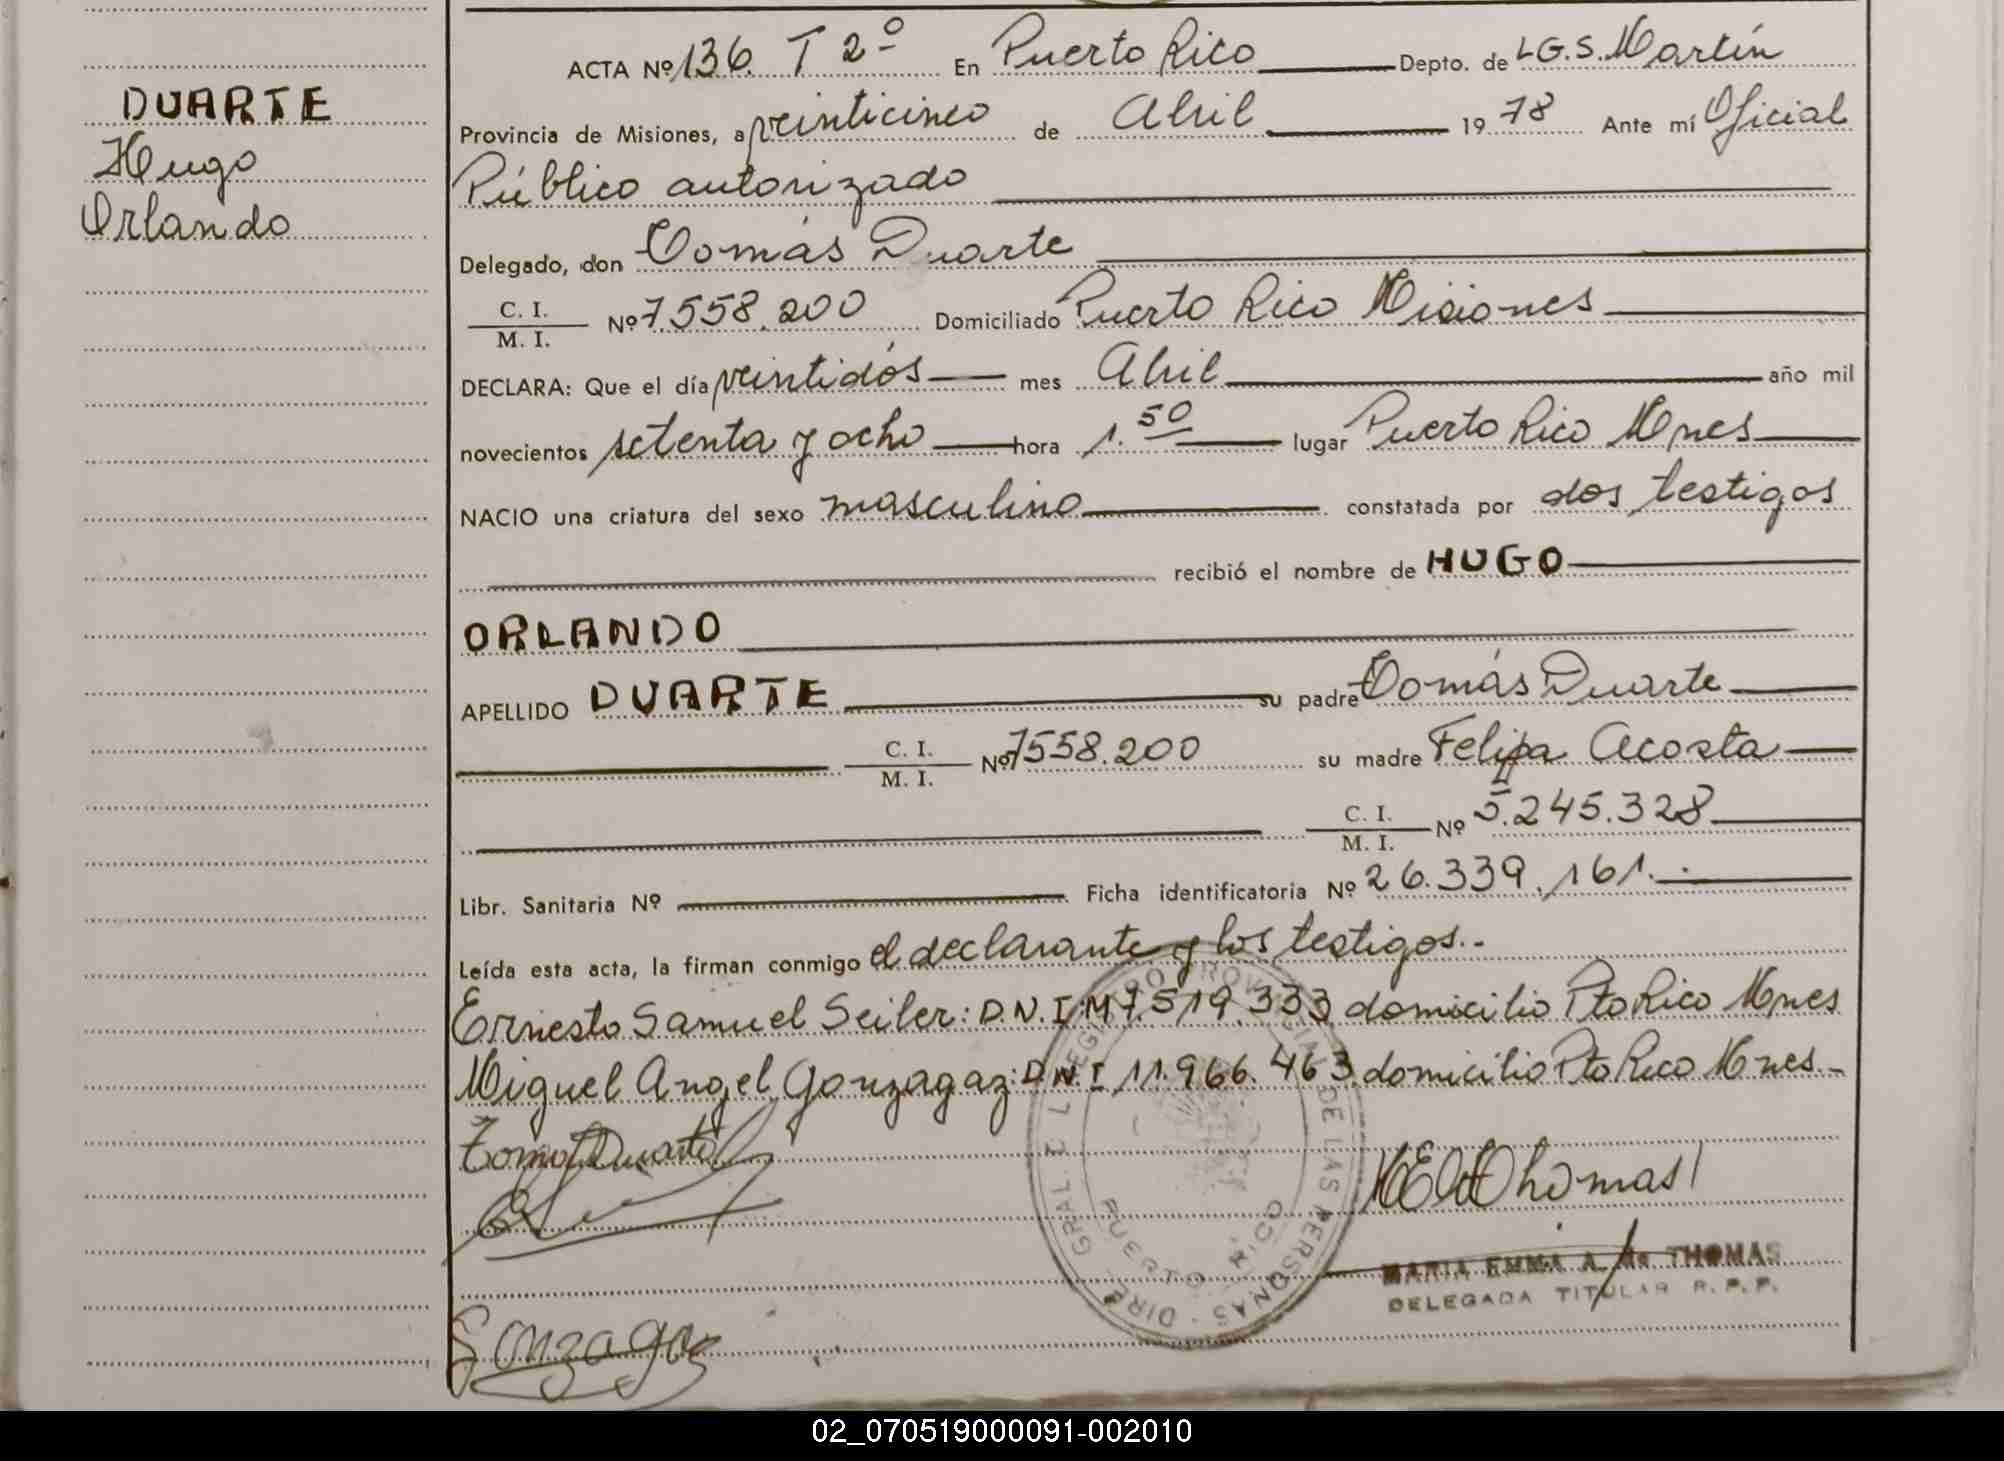 DUARTE
Hugo
Orlando
ACTA Nº 136. T 2º En Puerto Rico Depto. de L.G.S. Martín
Provincia de Misiones, a veinticinco de Abril 19 78 Ante mí Oficial
Público autorizado
Delegado, don Tomás Duarte
C. I.
M. I. Nº 7.558.200 Domiciliado Puerto Rico Misiones
DECLARA: Que el día veintidós mes Abril año mil
novecientos setenta y ocho hora 1.50 lugar Puerto Rico Mnes
NACIO una criatura del sexo masculino constatada por dos testigos
recibió el nombre de HUGO
ORLANDO
APELLIDO DUARTE su padre Tomás Duarte
C. I.
M. I. Nº 7558.200 su madre Felipa Acosta
C. I.
M. I. Nº 5.245.328
Libr. Sanitaria Nº Ficha identificatoria Nº 26.339.161.
Leída esta acta, la firman conmigo el declarante y los testigos.-
Ernesto Samuel Seiler: D.N.I M 7.519.333 domicilio Pto Rico Mnes
Miguel Angel Gonzagaz: D.N.I 11.966.463 domicilio Pto Rico Mnes.-
Tomas Duarte
Thomas
MARIA EMMA A. de THOMAS
DELEGADA TITULAR R. P. P.
Gonzagaz
DIRE GRAL DEL REGISTRO PROVINCIAL DE LAS PERSONAS
PUERTO RICO
02_070519000091-002010